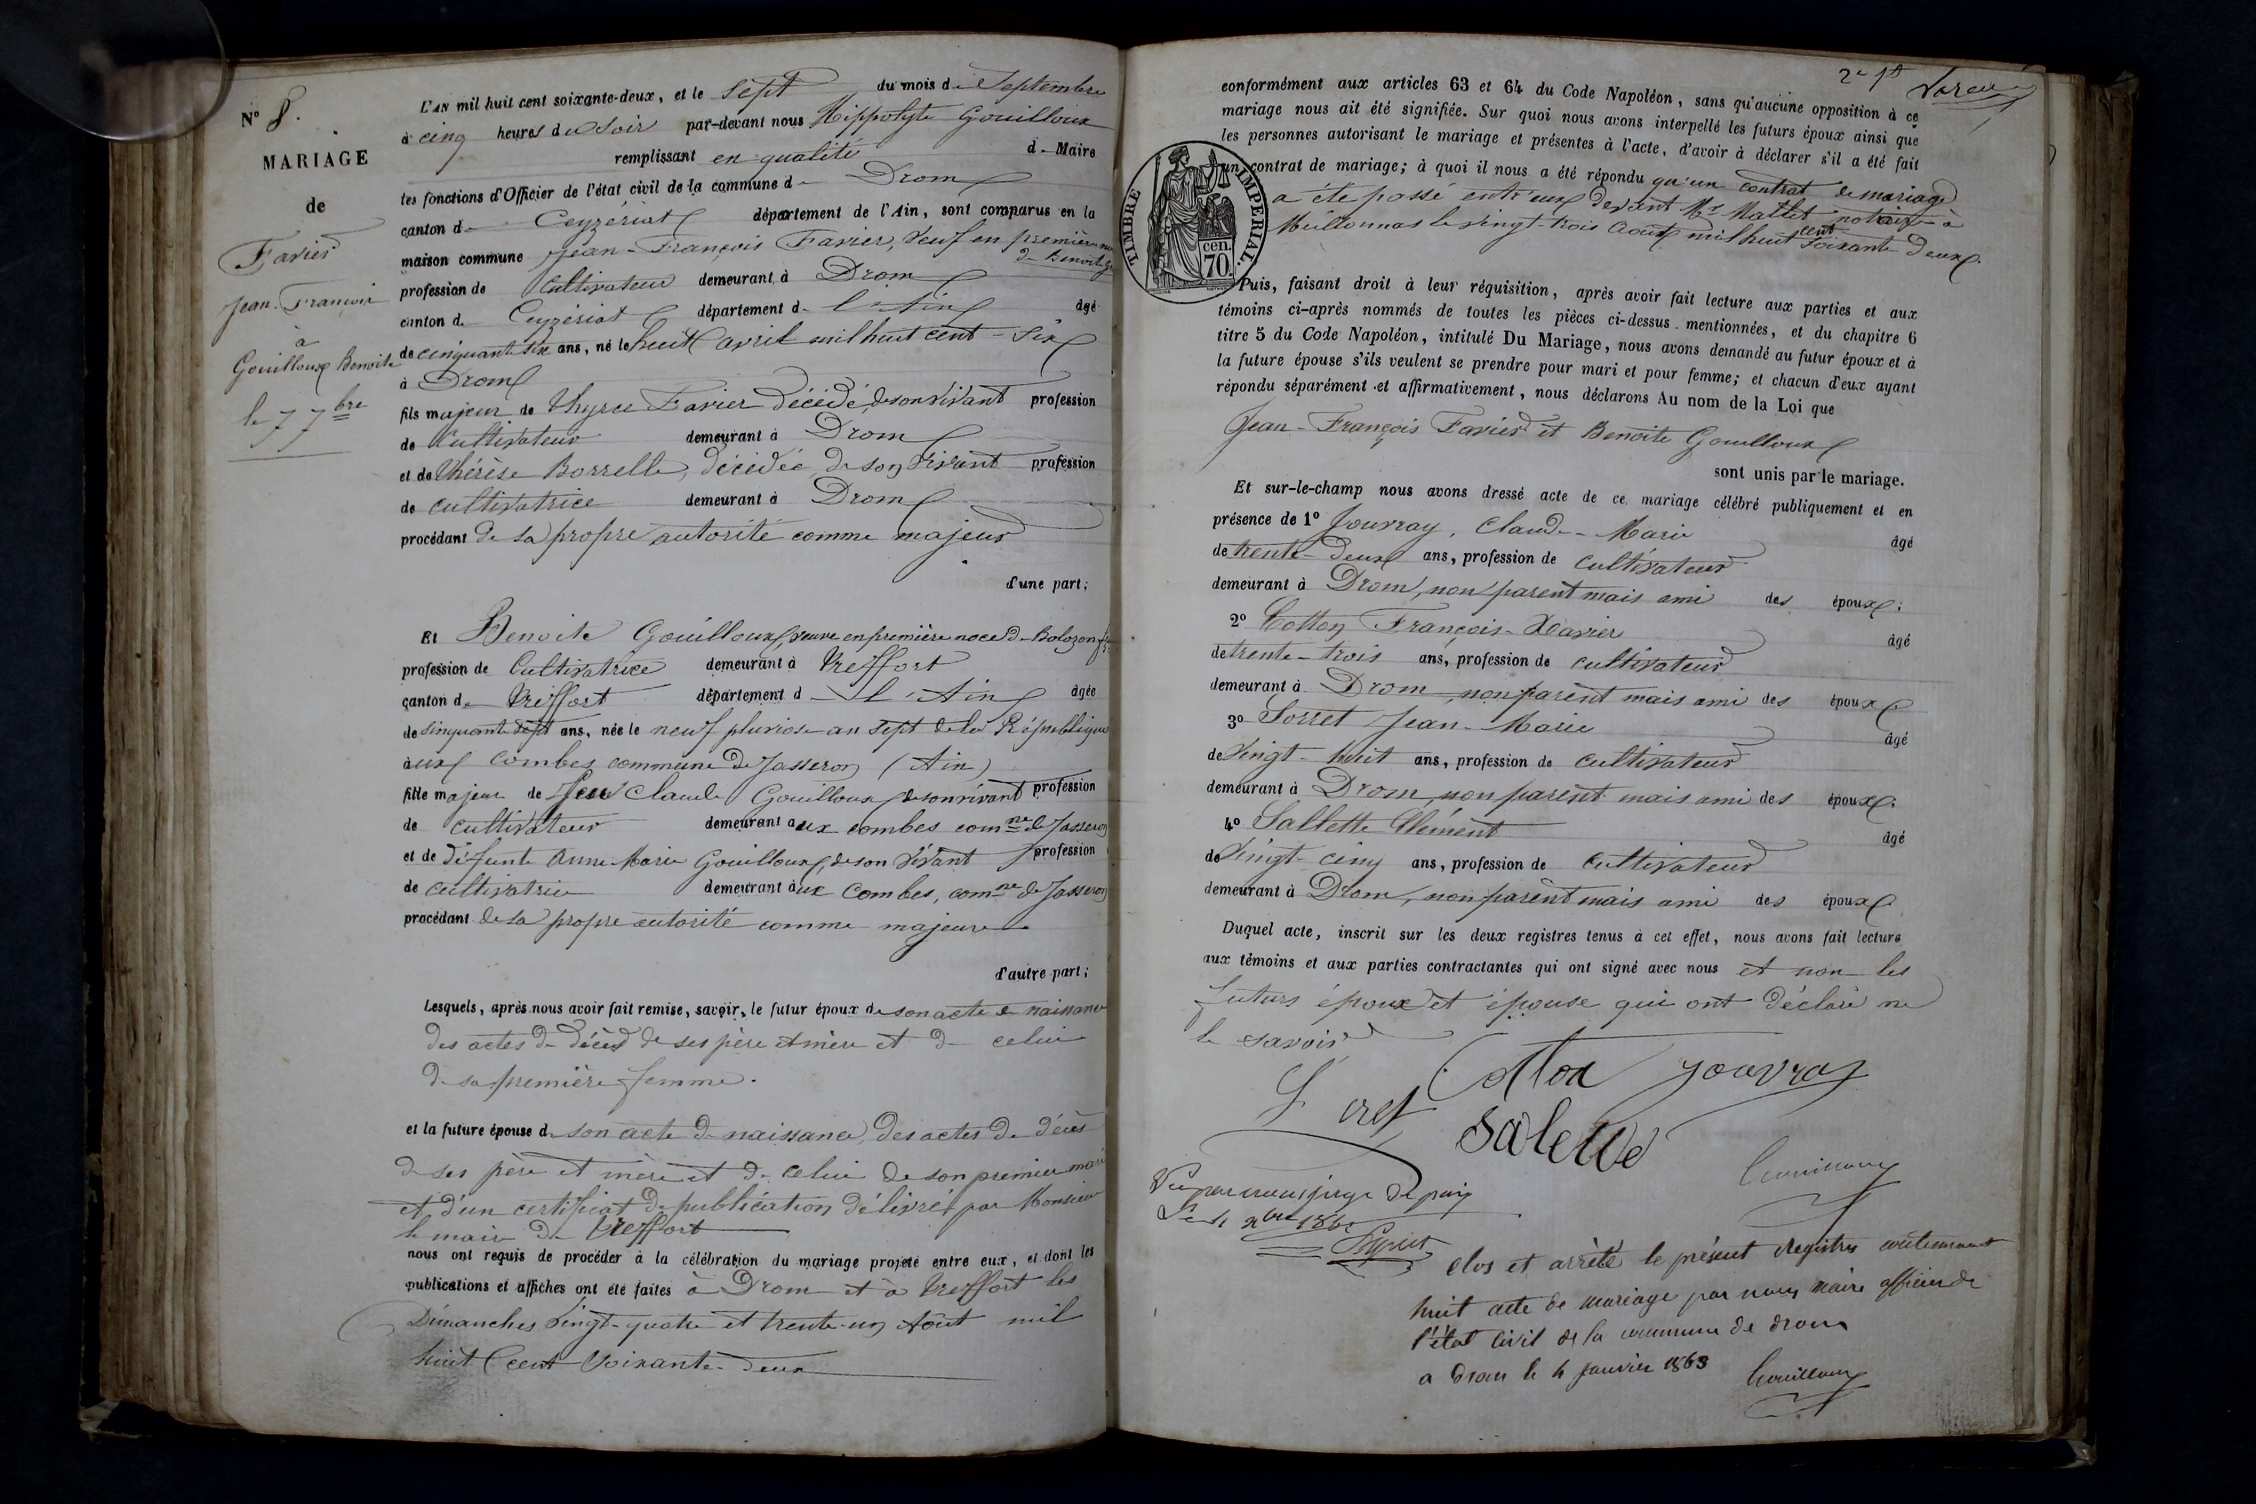 N° 8.
MARIAGE
de
Favier
Jean-François
à
Gouilloux Benoite
le 7 7bre
L'AN mil huit cent soixante-deux, et le sept du mois de Septembre
à cinq heures du soir par-devant nous Hippolyte Gouilloux
remplissant en qualité de Maire
les fonctions d'Officier de l'état civil de la commune de Drom
canton de Ceyzériat département de l'Ain, sont comparus en la
maison commune Jean-François Favier, veuf en première
de Benoite
profession de Cultivateur demeurant à Drom
canton de Ceyzériat département de l'Ain âgé
de cinquante six ans, né le huit avril mil huit cent-six
à Drom
fils majeur de Thyrse Favier décédé, de son vivant profession
de Cultivateur demeurant à Drom
et de Thérèse Borrelle, décédée, de son vivant profession
de cultivatrice demeurant à Drom
procédant de sa propre autorité comme majeur
d'une part;
Et Benoite Gouilloux, veuve en première noce de Bolozon
profession de Cultivatrice demeurant à Treffort
canton de Treffort département de l'Ain âgée
de cinquante sept ans, née le neuf pluviose an sept de la République
aux Combes commune de Jasseron (Ain)
fille majeure de feu Claude Gouilloux, de son vivant profession
de cultivateur demeurant aux combes comne de Jasseron
et de défunte Anne-Marie Gouilloux, de son vivant profession
de cultivatrice demeurant aux Combes, comne de Jasseron
procédant de sa propre autorité comme majeure
d'autre part;
Lesquels, après nous avoir fait remise, savoir, le futur époux de son acte de naissance
des actes de décès de ses père et mère et de celui
de sa première femme.
et la future épouse de son acte de naissance, des actes de décès
de ses père et mère et de celui de son premier mari
et d'un certificat de publication délivré par Monsieur
le maire de Treffort
nous ont requis de procéder à la célébration du mariage projeté entre eux, et dont les
publications et affiches ont été faites à Drom et à Treffort les
Dimanches vingt-quatre et trente-un Août mil
huit cent soixante-deux
conformément aux articles 63 et 64 du Code Napoléon, sans qu'aucune opposition à ce
mariage nous ait été signifiée. Sur quoi nous avons interpellé les futurs époux ainsi que
les personnes autorisant le mariage et présentes à l'acte, d'avoir à déclarer s'il a été fait
un contrat de mariage; à quoi il nous a été répondu qu'un contrat de mariage
a été passé entr'eux devant Mr Mallet notaire à
Meillonnas le vingt-trois Août mil huit cent soixante-deux.
TIMBRE IMPÉRIAL.
70. cen.
Puis, faisant droit à leur réquisition, après avoir fait lecture aux parties et aux
témoins ci-après nommés de toutes les pièces ci-dessus mentionnées, et du chapitre 6
titre 5 du Code Napoléon, intitulé Du Mariage, nous avons demandé au futur époux et à
la future épouse s'ils veulent se prendre pour mari et pour femme; et chacun d'eux ayant
répondu séparément et affirmativement, nous déclarons Au nom de la Loi que
Jean-François Favier et Benoite Gouilloux
sont unis par le mariage.
Et sur-le-champ nous avons dressé acte de ce mariage célébré publiquement et en
présence de 1° Jouvray, Claude-Marie âgé
de trente-deux ans, profession de cultivateur
demeurant à Drom, non parent mais ami des époux;
2° Cotton François-Xavier âgé
de trente-trois ans, profession de cultivateur
demeurant à Drom, non parent mais ami des époux
3° Sorret Jean-Marie âgé
de vingt-huit ans, profession de cultivateur
demeurant à Drom, non parent mais ami des époux.
4° Sallette Clément âgé
de vingt-cinq ans, profession de cultivateur
demeurant à Drom, non parent mais ami des époux
Duquel acte, inscrit sur les deux registres tenus à cet effet, nous avons fait lecture
aux témoins et aux parties contractantes qui ont signé avec nous et non les
futurs époux et épouse qui ont déclaré ne
le savoir
Coton Jouvray
Salette
Gouilloux
Vu par nous juge de paix
Clos et arrêté le présent Registre contenant
huit acte de mariage par nous Maire officier de
l'état civil de la commune de drom
a Drom le 4 janvier 1863
Gouilloux